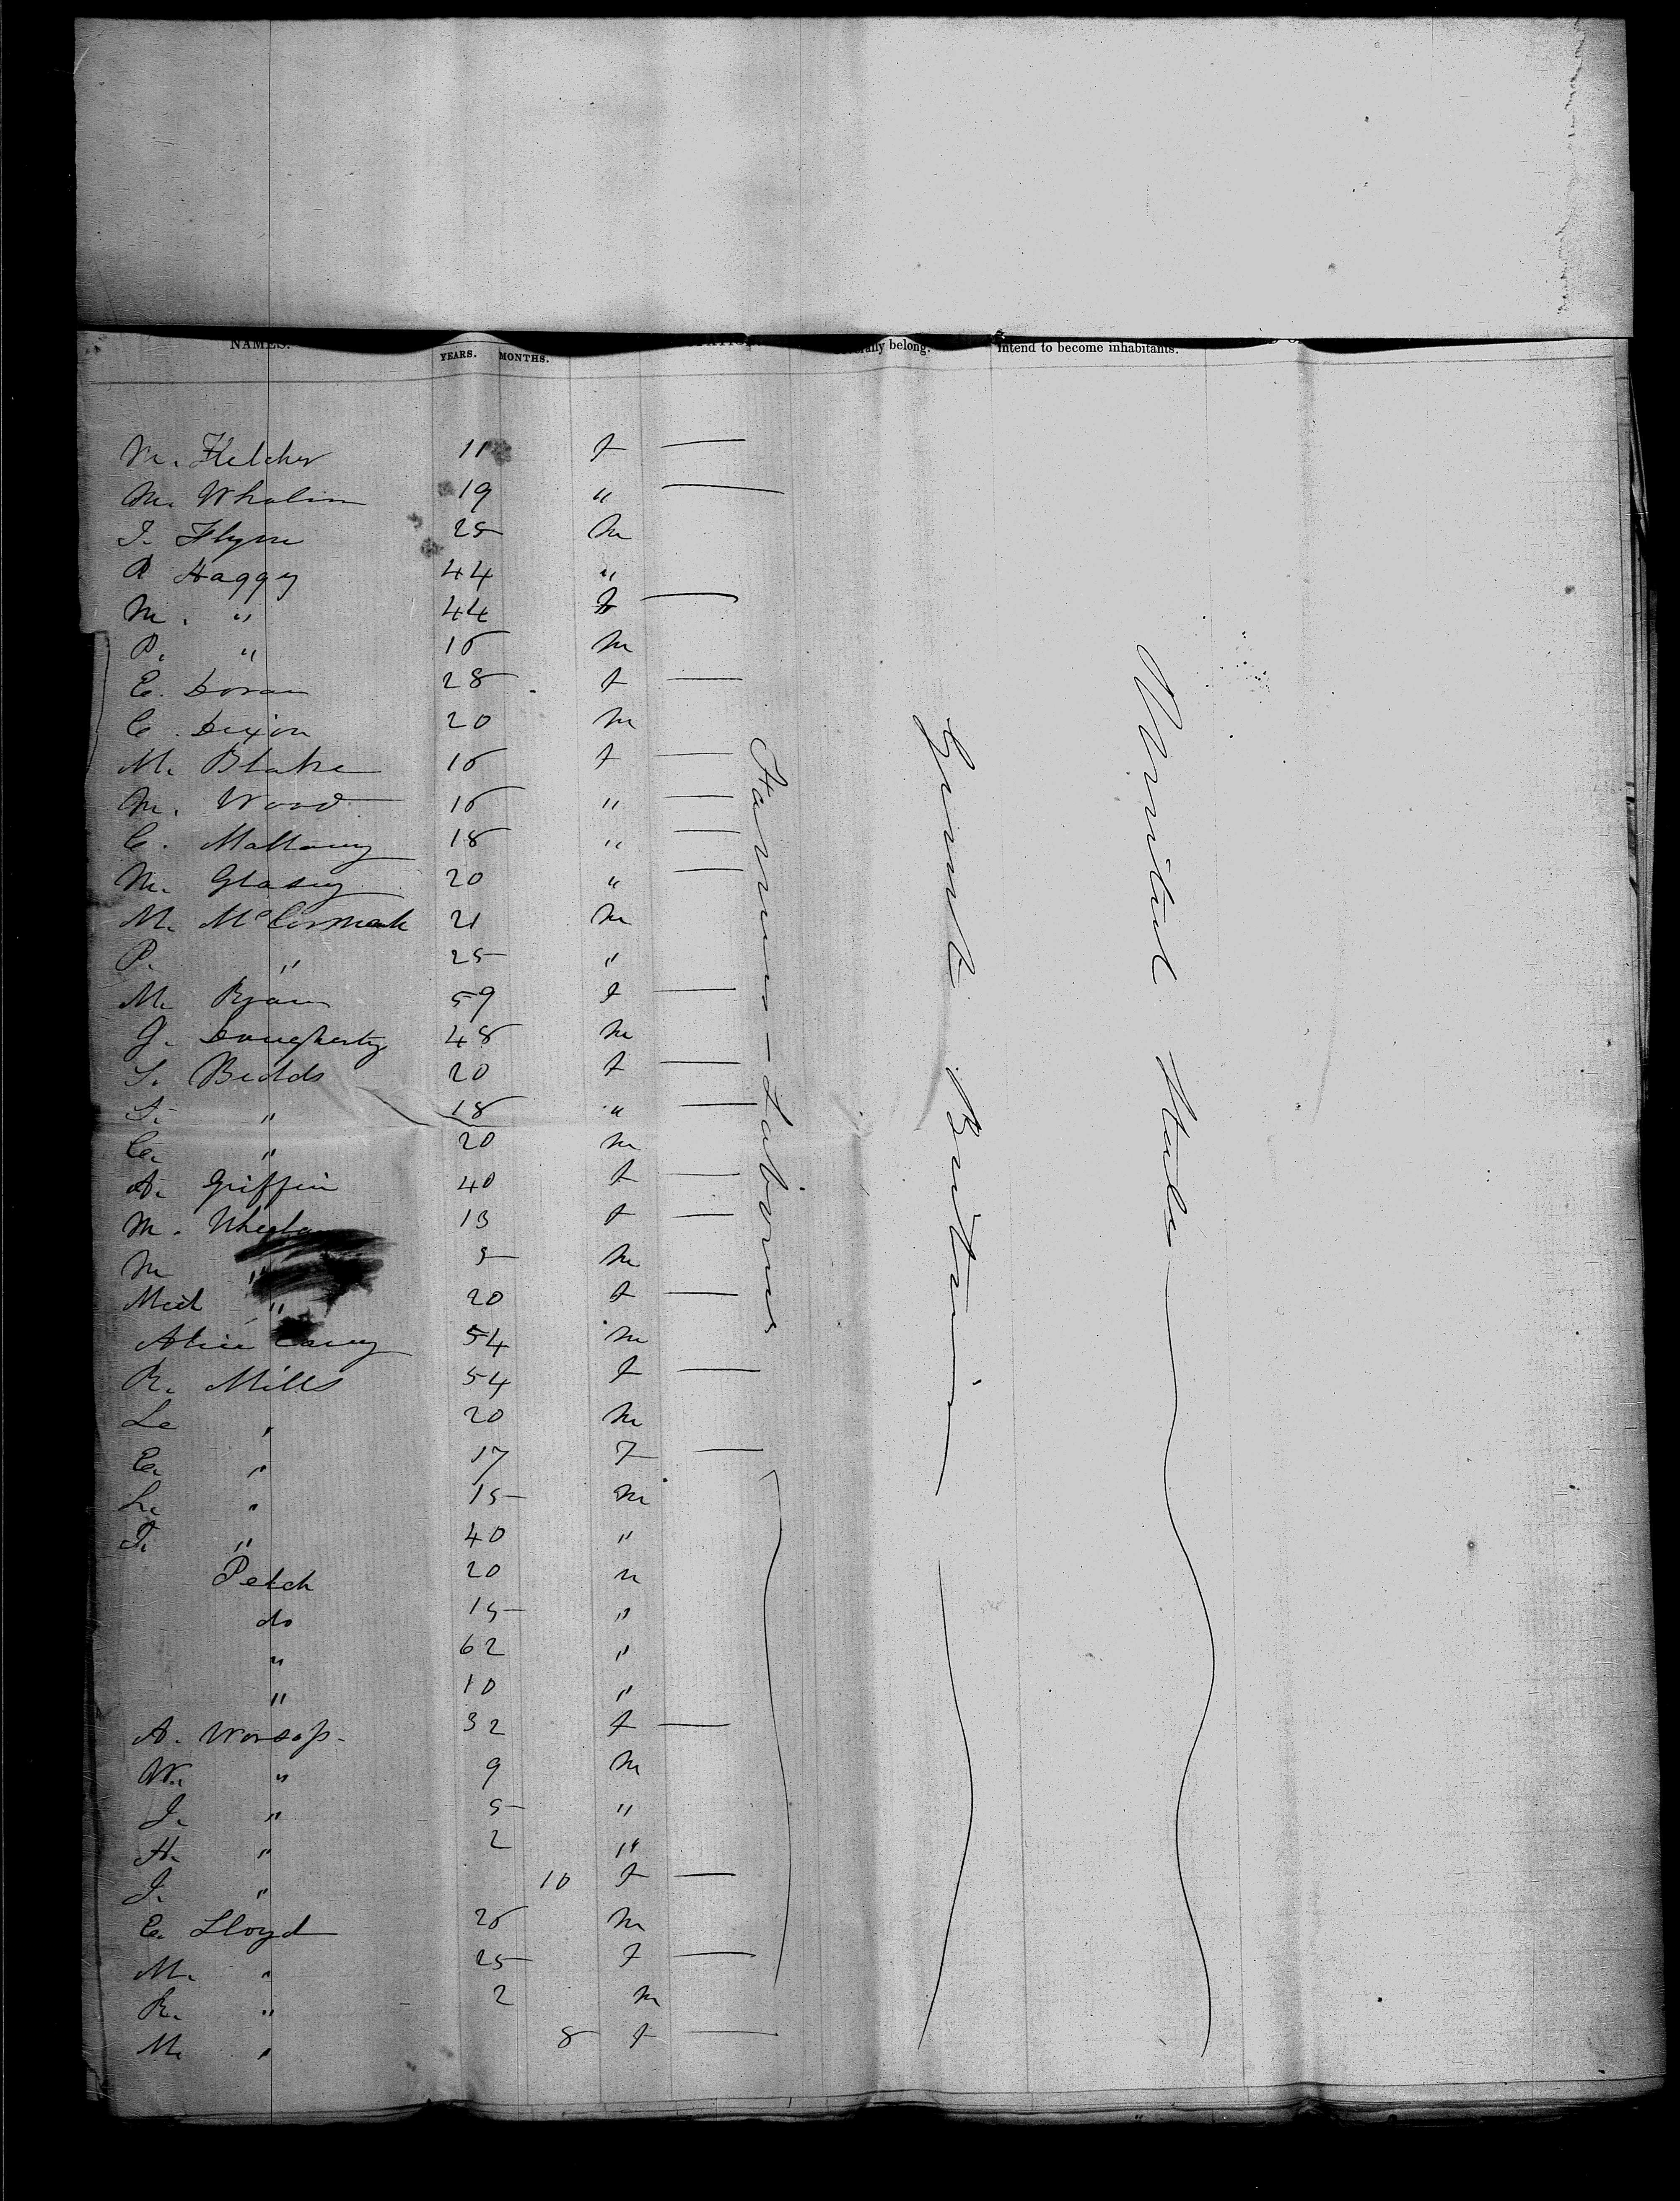 NAMES. YEARS. MONTHS. belong. intend to become inhabitants.
M. Fletcher 11 f —
M. Whalin 19 " —
J. Flynn 25 m
P Haggy 44 "
M. " 44 f —
P. " 16 m
E. Doran 28 f —
C. Dixon 20 m
M. Blake 16 f —
M. Wood 16 " —
C. Mallowy 18 " —
M. 20 " —
M. McCormack 21 m
P. " 25 "
M. Ryan 59 f —
J. Dougherty 48 m
S. Bedds 20 f —
S. " 18 " —
C. " 20 m
A. Griffin 40 f —
M. 13 f —
M " 5 m
" 20 f —
Alice Carey 54 m
R. Mills 54 f —
" 20 m
E. " 17 F —
" 15 m
T. " 40 "
Petch 20 "
do 15 "
" 62 "
" 10 "
A. Worsop. 32 f —
W. " 9 m
J. " 5 "
H. " 2 "
J. " 10 f —
E. Lloyd 26 m
M. " 25 f —
R. " 2 m
M. " 8 f —
Farmers - Labourers
Great Britain
United States